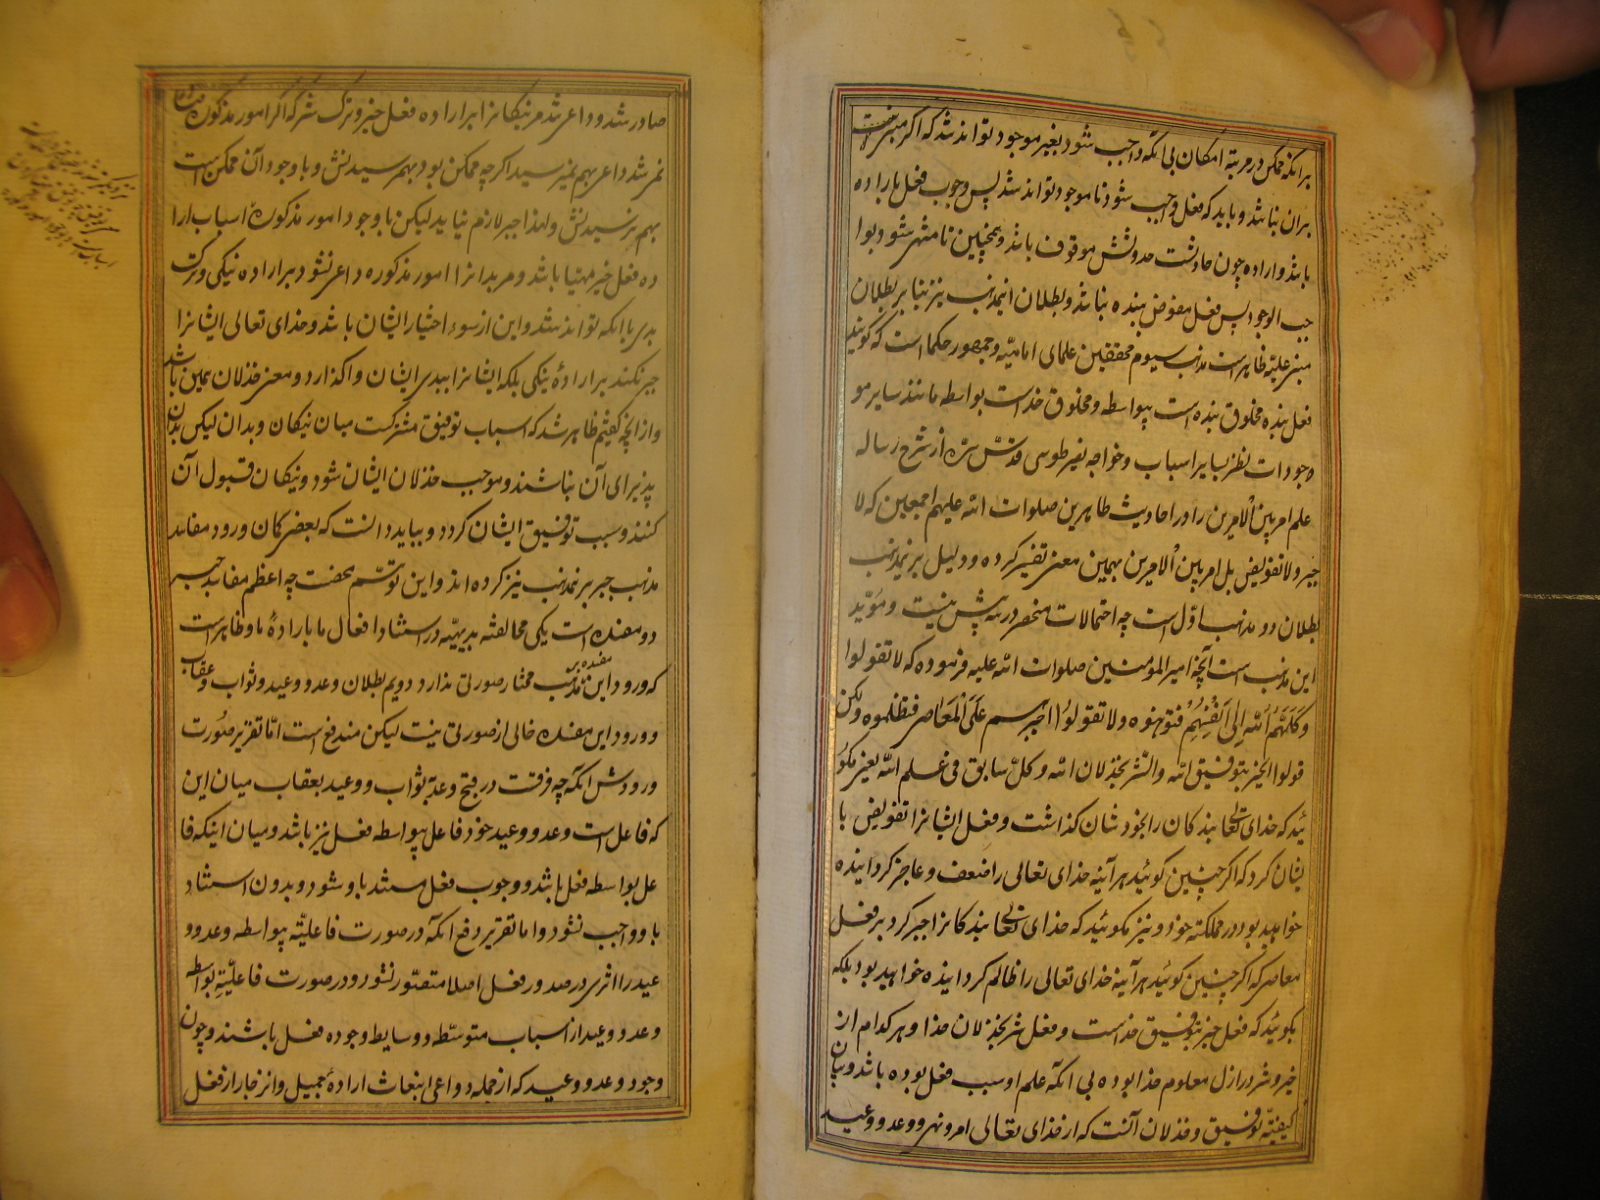 برانکه ممکن در مرتبهٔ امکان بی آنکه واجب شود بغیر موجود تواند شد که اکر مبتنی
بران نباشد و باید که فعل واجب شود تا موجود تواند شد پس وجوب فعل باراده
باشد و اراده چون حادثست حدوثش موقوف باشد و همچنین تا منتهی شود بوا
جب الوجود پس فعل مفوض ببنده نباشد و بطلان اینمذهب نیز بنا بر بطلان
مبنی علیه ظاهر است مذهب سیوم محققین علمای امامیه و جمهور حکما است که کویند
فعل بنده مخلوق بنده است بیواسطه و مخلوق خداست بواسطه مانند سایر مو
جودات نظر بسایر اسباب و خواجه نصیر طوسی قدّس سرّه از شرح رساله
علم امر بین الامرین را در احادیث طاهرین صلوات الله علیهم اجمعین که لا
جبر و لا تفویض بل امر بین الامرین بهمین معنی تفسیر کرده و دلیل بر نمذهب
بطلان دو مذهب اوّل است چه احتمالات منحصر در سه پیش نیست و مؤید
این مذهب است آنچه امیر المؤمنین صلوات الله علیه فرموده که لا تقولوا
وکلهم الله الی انفسهم فتوهنوه ولا تقولوا اجبرهم علی المعاصی فتظلموه ولکن
قولوا الخیر بتوفیق الله والشر بخذلان الله وکلّ سابق فی علم الله یعنی مکو
ئید که خدای تعالی بندکان را بخودشان کذاشت و فعل ایشانرا تفویض با
یشان کرد که اکر چنین کوئید هر آینه خدای تعالی را ضعف و عاجز کردانیده
خواهید بود در مملکتِ خود و نیز مکوئید که خدای تعالی بندکانرا جبر کرد بر فعل
معاصی که اکر چنین کوئید هر آینه خدای تعالی را ظالم کردانیده خواهید بود بلکه
بکوئید که فعل خیر بتوفیق خداست و فعل شر بخذلان خدا و هر کدام از
خیر و شر در ازل معلوم خدا بوده بی آنکه علم او سبب فعل بوده باشد و بیان
کیفیّت توفیق و خذلان آنست که از خدای تعالی امر و نهی و وعد و وعید
صادر شد و داعی شد مر نیکانرا بر اراده فعل خیر و ترک شر که اکر امور مذکوره
نمی شد داعی بهم نمیرسید اکرچه ممکن بود بهم رسیدنش و با وجود آن ممکن است
بهم نرسیدنش و لهذا جبر لازم نیاید لیکن با وجود امور مذکوره اسباب ارا
ده فعل خیر مهیّا باشد و مر بدانرا امور مذکوره داعی نشود بر اراده نیکی و ترک
بدی با آنکه تواند شد و این از سوء اختیار ایشان باشد و خدای تعالی ایشانرا
جبر نکند بر ارادهٔ نیکی بلکه ایشانرا ببدی ایشان واکذارد و معنی خذلان همین باشد
و از آنچه کفتیم ظاهر شد که اسباب توفیق مشترکست میان نیکان و بدان لیکن بدان
پذیرای آن نباشند و موجب خذلان ایشان شود و نیکان قبول آن
کنند و سبب توفیق ایشان کردد و بباید دانست که بعضی کمان ورود مفاسد
مذهب جبر بر نمذهب نیز کرده اند و این توهّم محضست چه اعظم مفاسد جبر
دو مفسده است یکی مخالفت بدیهیّه در استناد افعال ما بارادهٔ ما و ظاهر است
که ورود این مفسده بر مذهب مختار صورتی ندارد دویم بطلان وعد و وعید و ثواب و عقاب
و ورود این مفسده خالی از صورتی نیست لیکن مندفع است امّا تقریر صورت
ورودش آنکه چه فرقست در قبح وعد بثواب و وعید بعقاب میان این
که فاعل است وعد و وعید خود فاعل بیواسطه فعل نیز باشد و میان اینکه فا
عل بواسطه فعل باشد و وجوب فعل مستند باو شود و بدون استناد
باو واجب نشود و اما تقریر دفع آنکه در صورت فاعلیّت بیواسطه وعد و و
عید را اثری در صدور فعل اصلا متصوّر نشود و در صورت فاعلیّتِ بواسطه
وعد و وعید از اسباب متوسّطه و وسایط وجوده فعل باشند و چون
وجود وعد و وعید که از جمله دواعی انبعاث ارادهٔ جمیل و انزجار از فعل